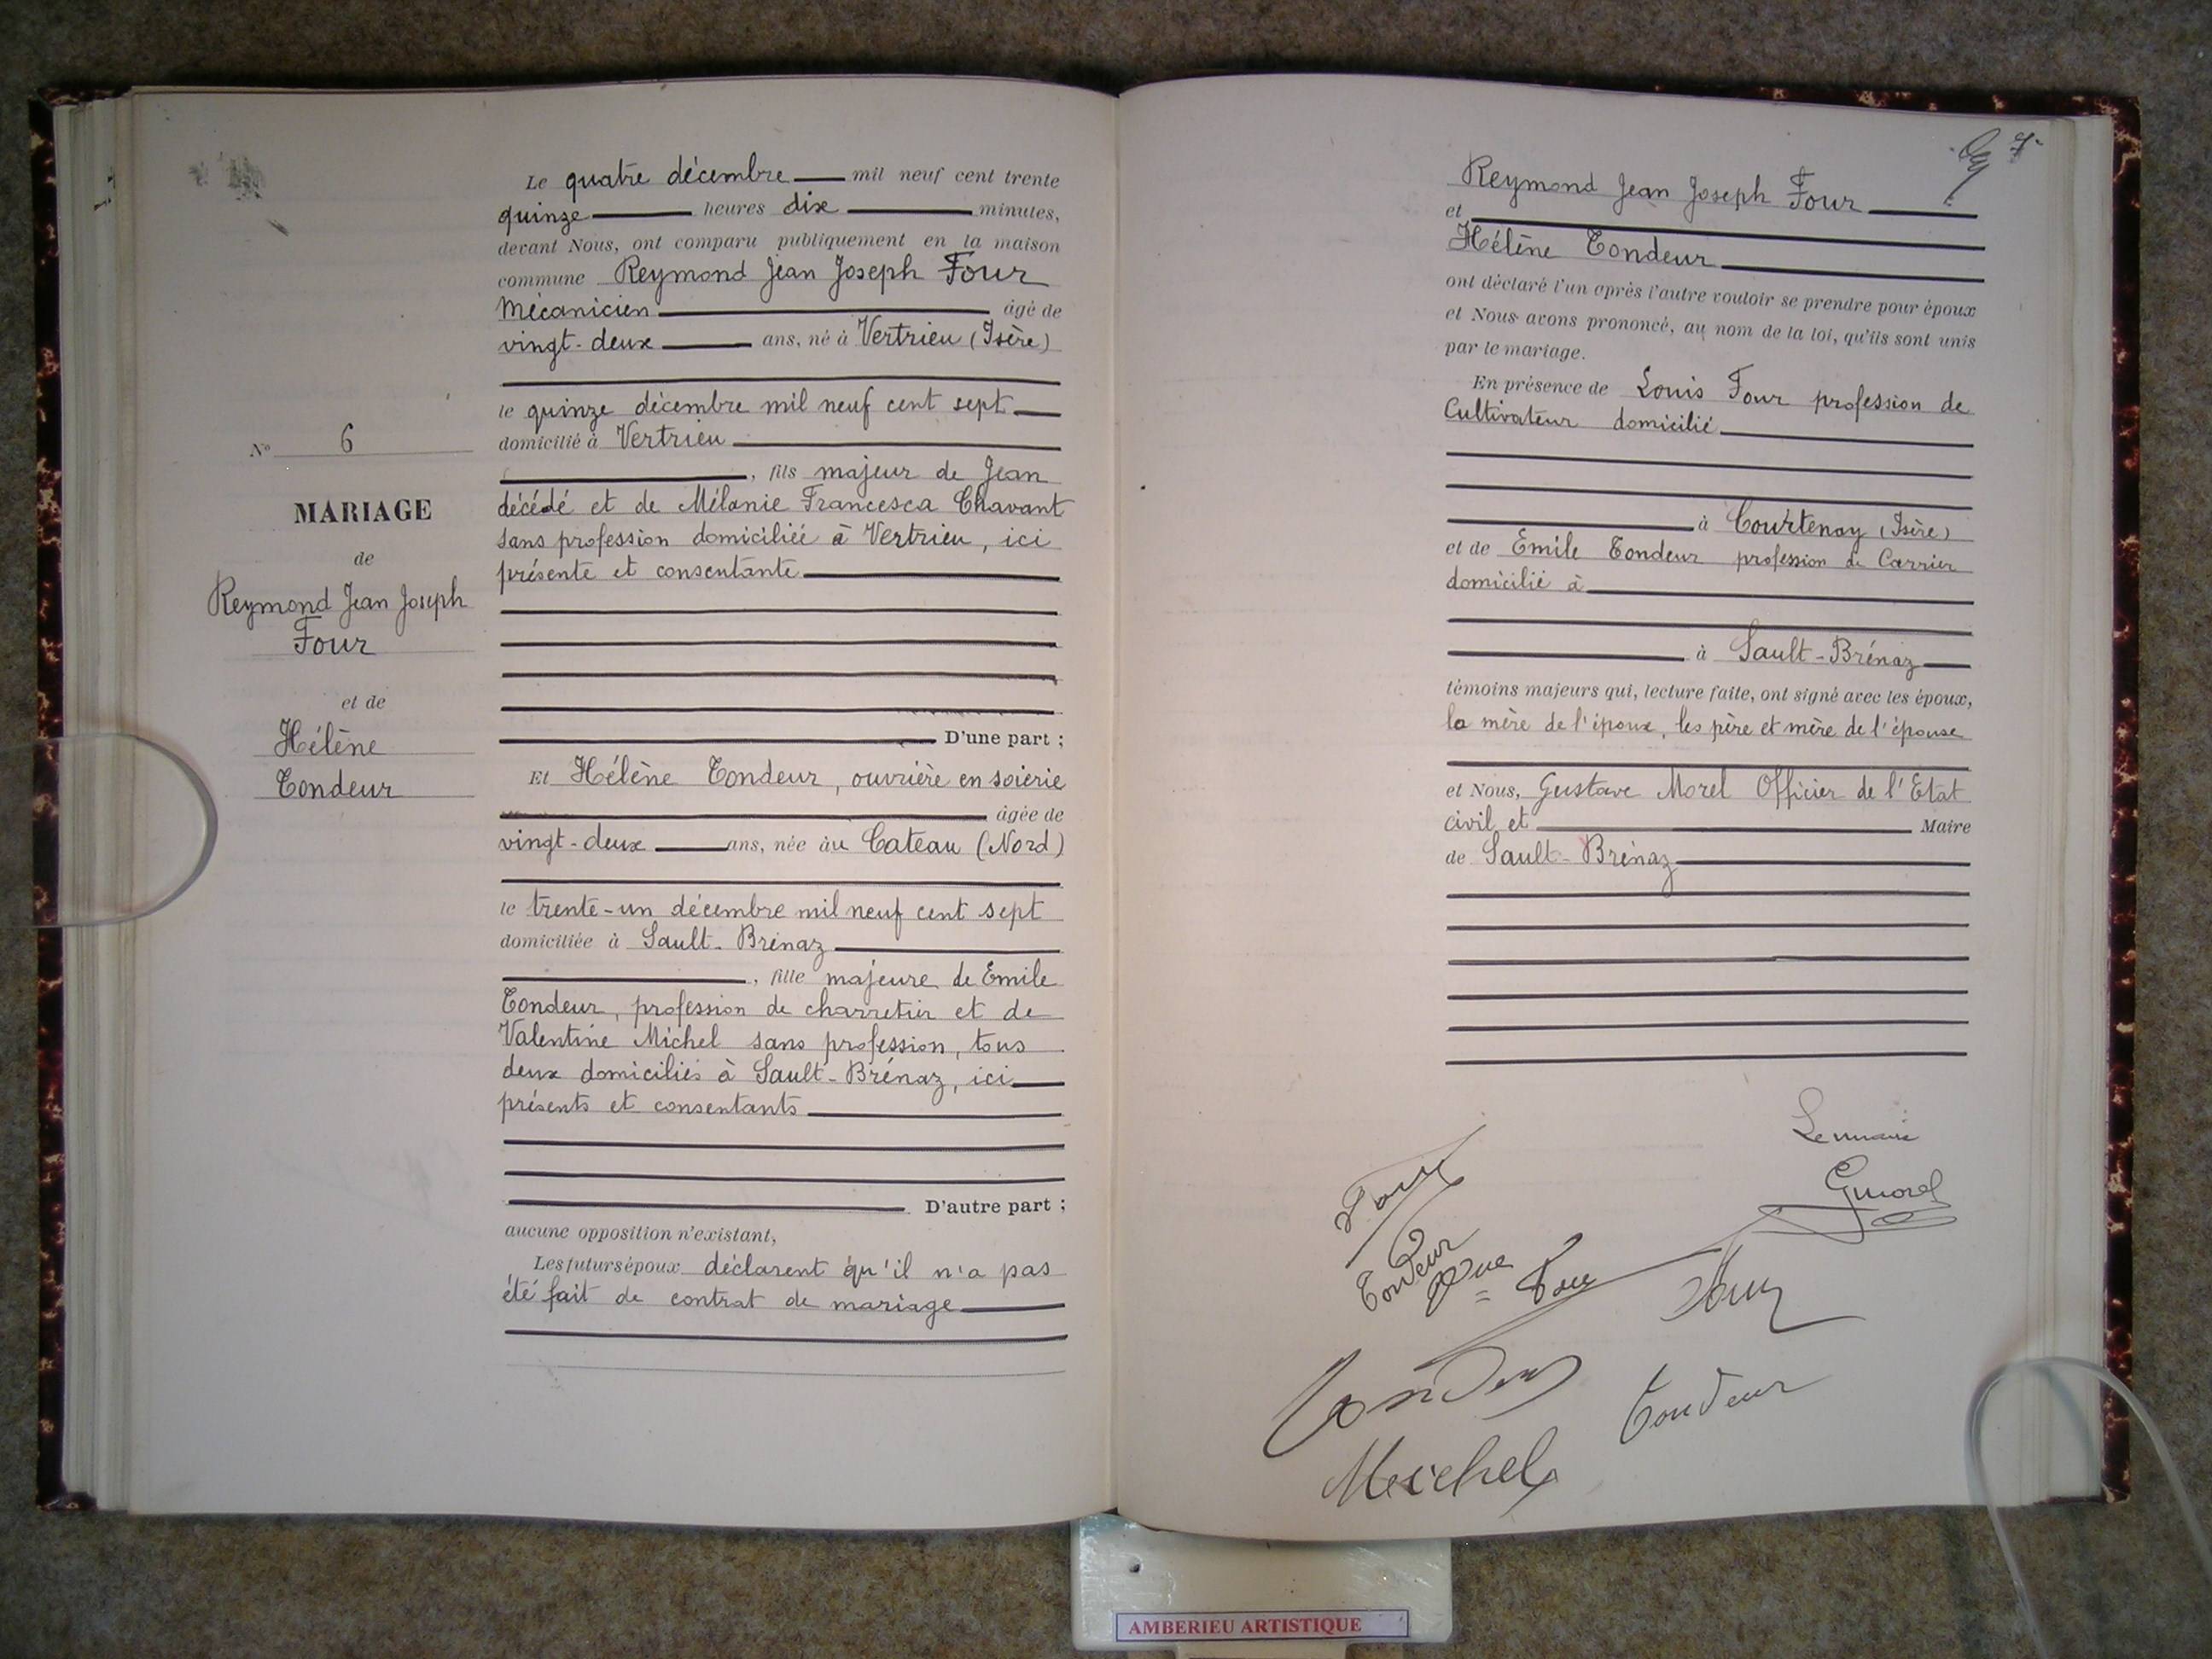 Le quatre décembre mil neuf cent trente
quinze heures dix minutes,
devant Nous, ont comparu publiquement en la maison
commune Reymond Jean Joseph Four
Mécanicien âgé de
vingt-deux ans, né à Vertrieu (Isère)
le quinze décembre mil neuf cent sept
domicilié à Vertrieu
, fils majeur de Jean
décédé et de Mélanie Francesca Chavant
sans profession domiciliée à Vertrieu, ici
présente et consentante
D'une part ;
Et Hélène Tondeur, ouvrière en soierie
âgée de
vingt-deux ans, née au Cateau (Nord)
le trente-un décembre mil neuf cent sept
domiciliée à Sault-Brénaz
, fille majeure de Emile
Tondeur, profession de charretier et de
Valentine Michel sans profession, tous
deux domiciliés à Sault-Brénaz, ici
présents et consentants
D'autre part ;
aucune opposition n'existant,
Les futurs époux déclarent qu'il n'a pas
été fait de contrat de mariage
N° 6
MARIAGE
de
Reymond Jean Joseph
Four
et de
Hélène
Tondeur
Reymond Jean Joseph Four
et
Hélène Tondeur
ont déclaré l'un après l'autre vouloir se prendre pour époux
et Nous avons prononcé, au nom de la loi, qu'ils sont unis
par le mariage.
En présence de Louis Four profession de
Cultivateur domicilié
à Courtenay (Isère)
et de Emile Tondeur profession de Carrier
domicilié à
à Sault-Brénaz
témoins majeurs qui, lecture faite, ont signé avec les époux,
la mère de l'époux, les père et mère de l'épouse
et Nous, Gustave Morel Officier de l'Etat
civil et Maire
de Sault-Brénaz
Le maire
GMorel
Four
Tondeur
Four
Tondeur
Michel
AMBERIEU ARTISTIQUE